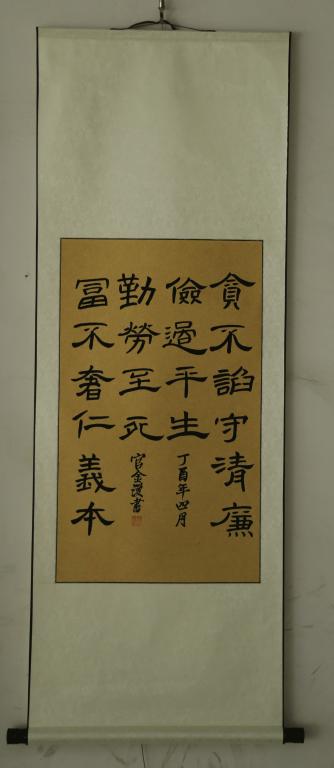 貧不諂守清廉
儉過平生
丁酉年四月
勤勞至死
官金書
冨不奢仁義本